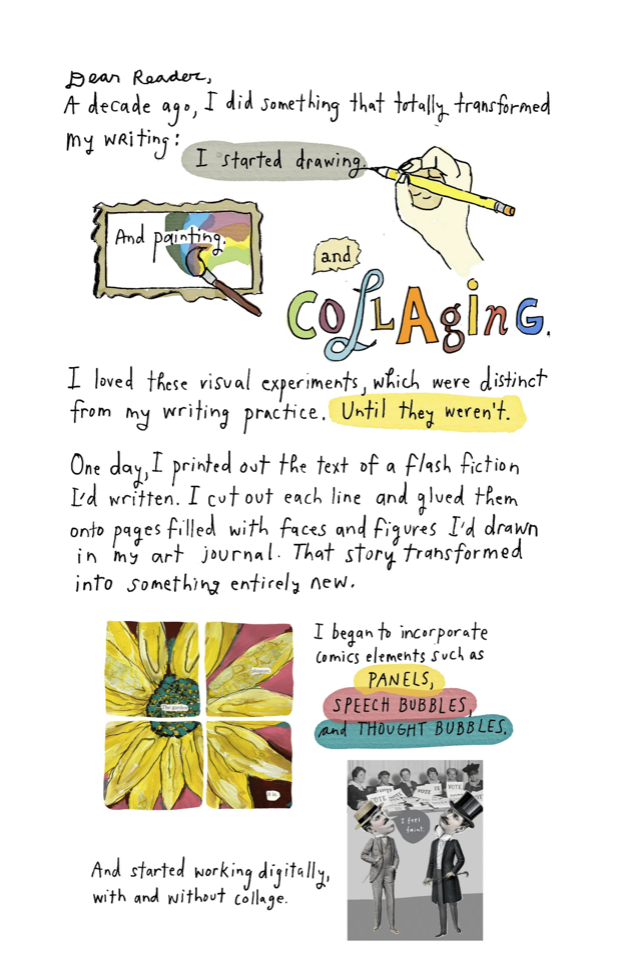 Dear Reader,
A decade ago, I did something that totally transformed
my writing:
I started drawing.
And painting.
and
COLLAgiNG.
I loved these visual experiments, which were distinct
from my writing practice. Until they weren't.
One day, I printed out the text of a flash fiction
I'd written. I cut out each line and glued them
onto pages filled with faces and figures I'd drawn
in my art journal. That story transformed
into something entirely new.
I began to incorporate
comics elements such as
PANELS,
SPEECH BUBBLES,
and THOUGHT BUBBLES.
The garden
VOTE
VOTE
I feel
faint.
And started working digitally,
with and without collage.